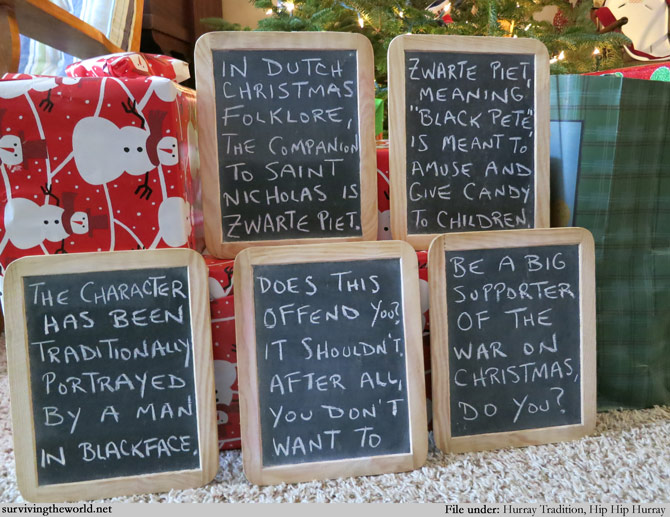 IN DUTCH
CHRISTMAS
FOLKLORE,
THE COMPANION
TO SAINT
NICHOLAS IS
ZWARTE PIET.
ZWARTE PIET,
MEANING
"BLACK PETE,"
IS MEANT TO
AMUSE AND
GIVE CANDY
TO CHILDREN.
THE CHARACTER
HAS BEEN
TRADITIONALLY
PORTRAYED
BY A MAN
IN BLACKFACE.
DOES THIS
OFFEND YOU?
IT SHOULDN'T.
AFTER ALL,
YOU DON'T
WANT TO
BE A BIG
SUPPORTER
OF THE
WAR ON
CHRISTMAS,
DO YOU?
survivingtheworld.net
File under: Hurray Tradition, Hip Hip Hurray